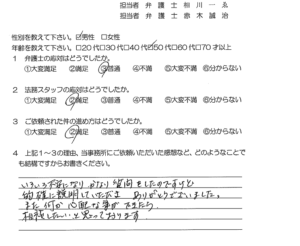 担当者 弁護士 柳川一ゑ
担当者 弁護士 赤木誠治
性別を教えて下さい。 ☑男性 □女性
年齢を教えて下さい。 □20代□30代□40代☑50代□60代□70才以上
1 弁護士の応対はどうでしたか。
①大変満足 ②満足 ③普通 ④不満 ⑤大変不満 ⑥分からない
2 法務スタッフの応対はどうでしたか。
①大変満足 ②満足 ③普通 ④不満 ⑤大変不満 ⑥分からない
3 ご依頼された件の進め方はどうでしたか。
①大変満足 ②満足 ③普通 ④不満 ⑤大変不満 ⑥分からない
4 上記1~3の理由、当事務所にご依頼いただいた感想など、どのようなことで
も結構ですからお書きください。
いろいろ不安になり かなり質問をしたのですけど
的確に説明していただき ありがとうございました。
また何か心配な事ができたら
相談したいと思っております